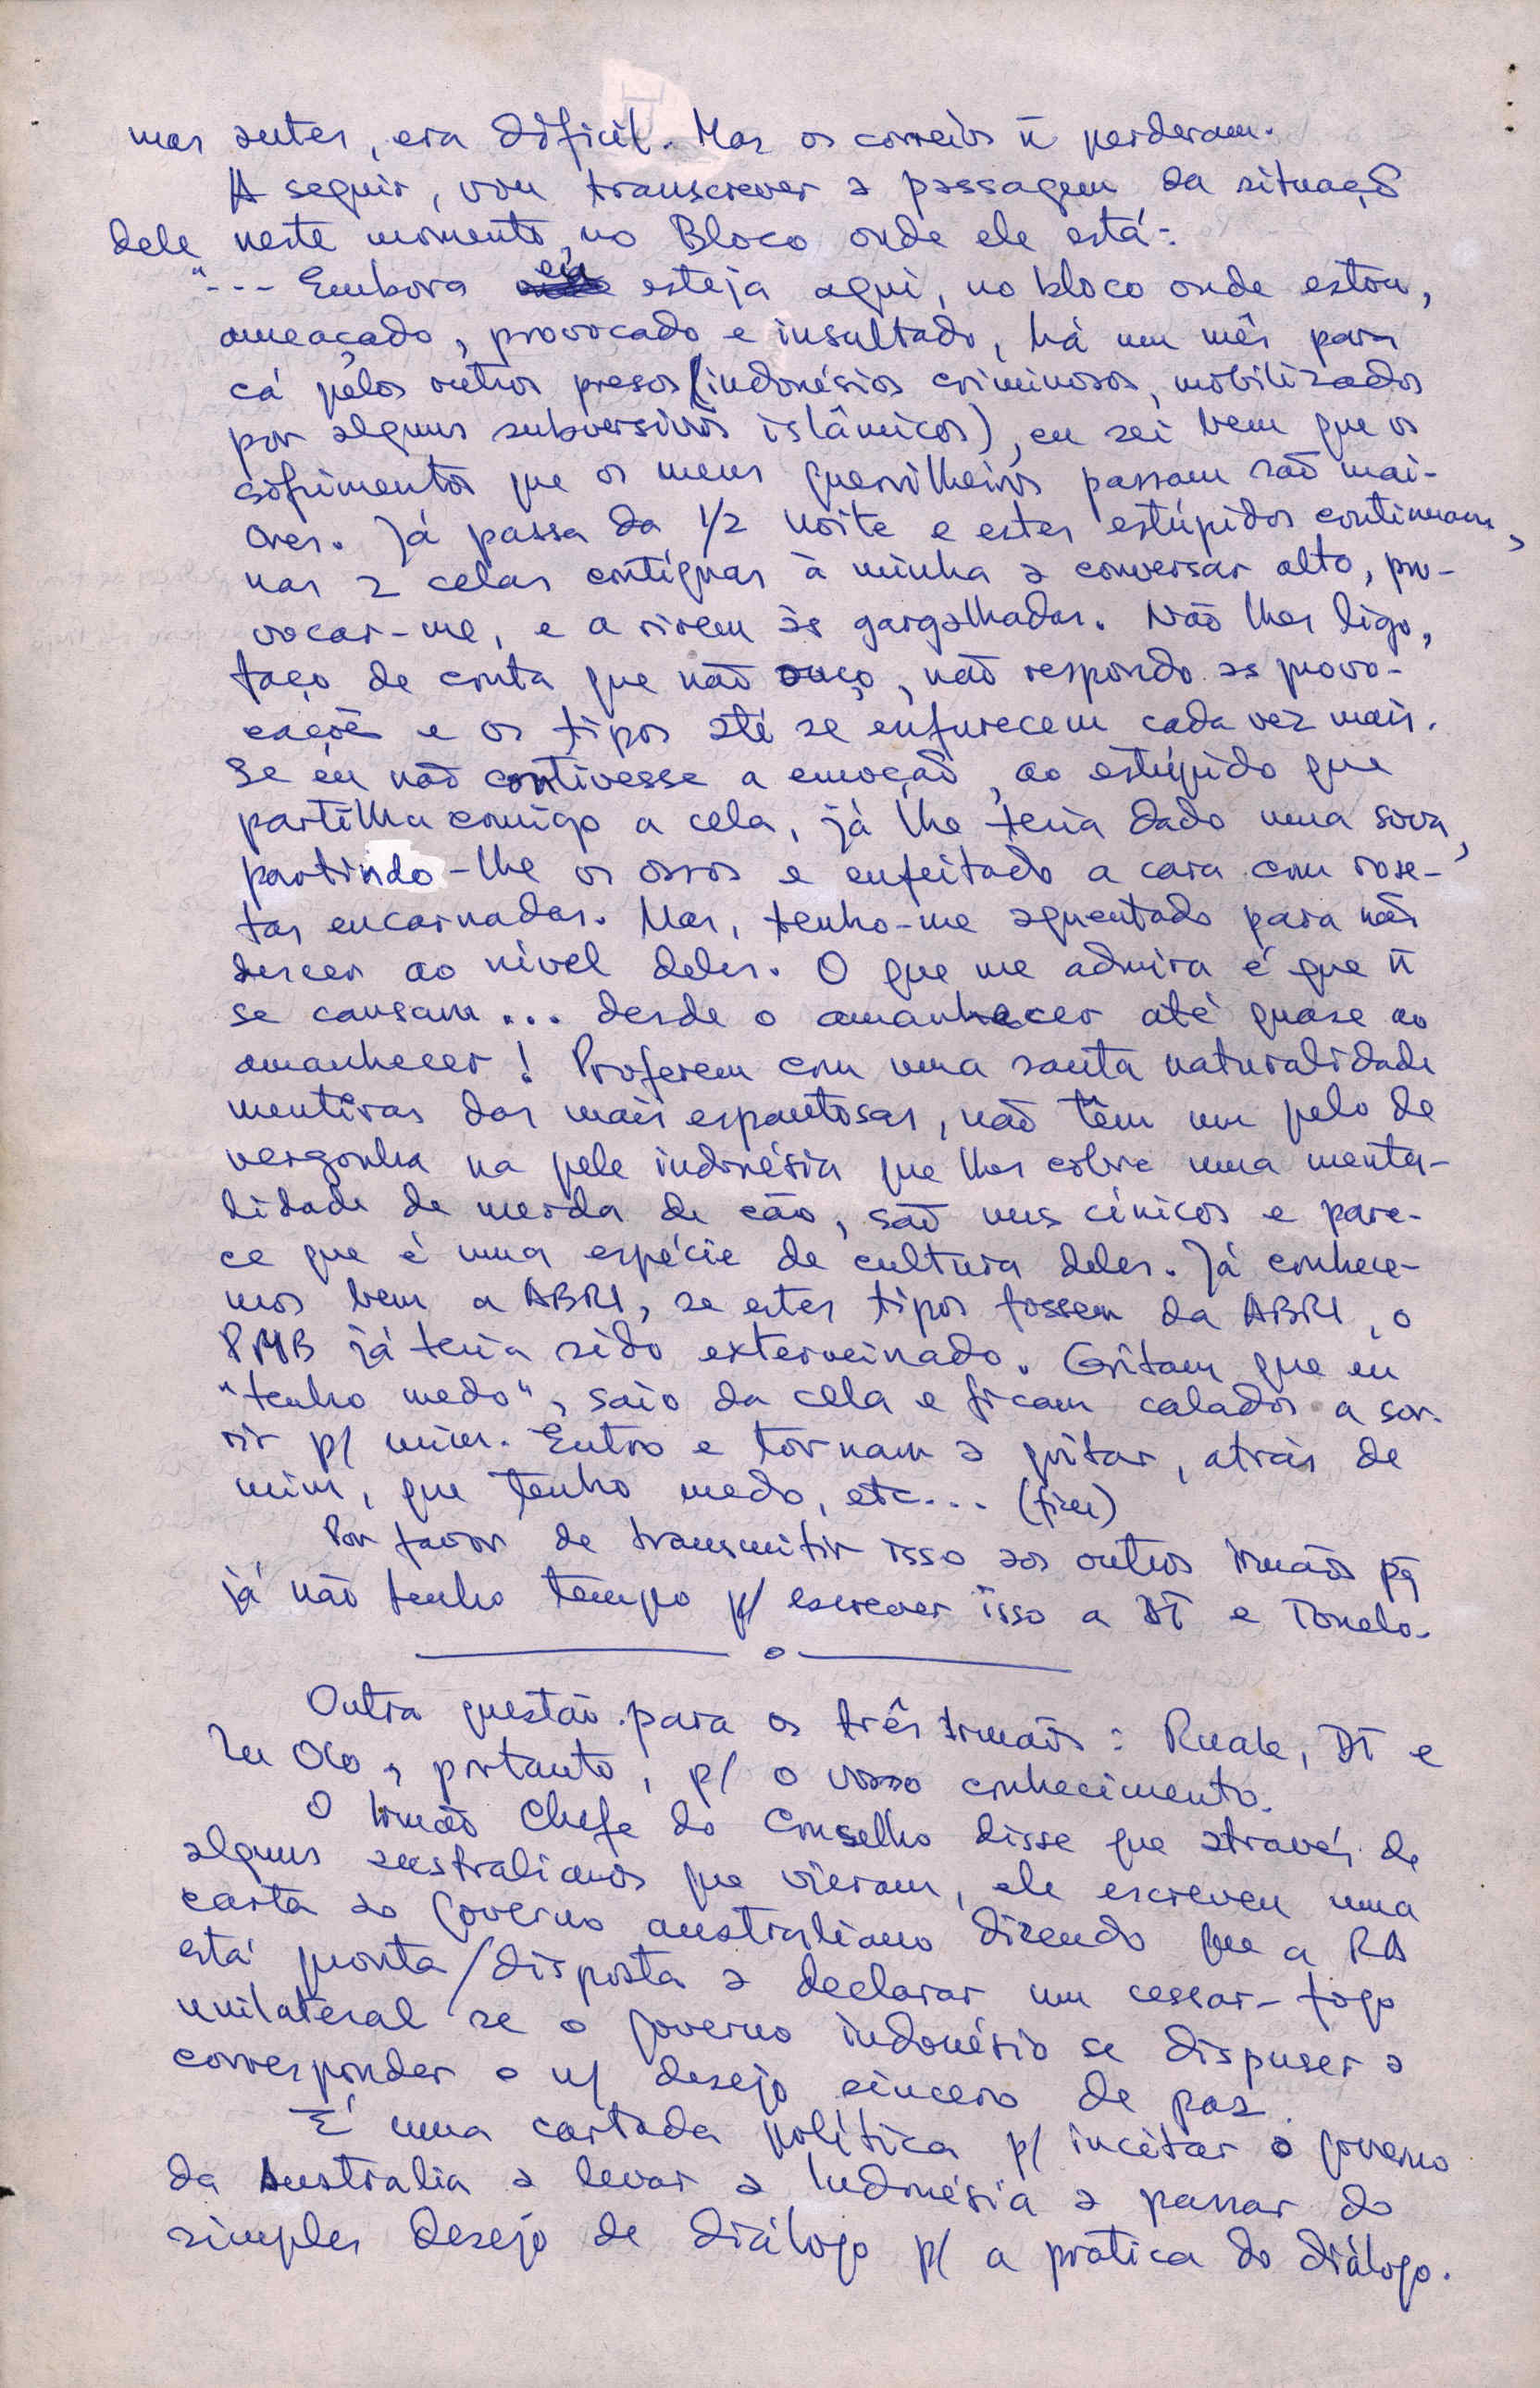 mas antes, era difícil. Mas os correios ñ perderam.
A seguir, vou transcrever a passagem da situaçõ
dele neste momento, no Bloco onde ele está:
"--- Embora eu esteja aqui, no bloco onde estou,
ameaçado, provocado e insultado, há um mês para
cá pelos outros presos (indonésios criminosos, mobilizados
por alguns subversivos islâmicos), eu sei bem que os
sofrimentos que os meus guerrilheiros passam são mai-
ores. Já passa da 1/2 noite e estes estúpidos continuam,
nas 2 celas contíguas à minha a conversar alto, pro-
vocar-me, e a rirem às gargalhadas. Não lhes ligo,
faço de conta que não ouço, não respondo as provo-
cações e os tipos até se enfurecem cada vez mais.
Se eu não contivesse a emoção, ao estúpido que
partilha comigo a cela, já lhe teria dado uma sova,
partindo-lhe os ossos e enfeitado a cara com rose-
tas encarnadas. Mas, tenho-me aguentado para não
descer ao nível deles. O que me admira é que ñ
se cansam... desde o amanhecer até quase ao
amanhecer! Proferem com uma santa naturalidade
mentiras das mais espantosas, não têm um pelo de
vergonha na pele indonésia que lhes cobre uma menta-
lidade de merda de cão, são uns cínicos e pare-
ce que é uma espécie de cultura deles. Já conhece-
mos bem a ABRI, se estes tipos fossem da ABRI, o
PMB já teria sido exterminado. Gritam que eu
"tenho medo", saio da cela e ficam calados a sor-
rir p/ mim. Entro e tornam a gritar, atrás de
mim, que tenho medo, etc... (fim)
Por favor de transmitir isso aos outros Irmãos pq
já não tenho tempo p/ escrever isso a DT e Tonelo.
o
Outra questão para os três Irmãos: Ruak, DT e
Lu Olo, portanto, p/ o vosso conhecimento.
O Irmão Chefe do Conselho disse que através de
alguns australianos que vieram, ele escreveu uma
carta ao Governo australiano dizendo que a RA
está pronta/disposta a declarar um cessar-fogo
unilateral se o governo indonésio se dispuser a
corresponder o n/ desejo sincero de paz.
É uma cartada política p/ incitar o governo
da Australia a levar a Indonésia a passar do
simples desejo de diálogo p/ a prática do diálogo.